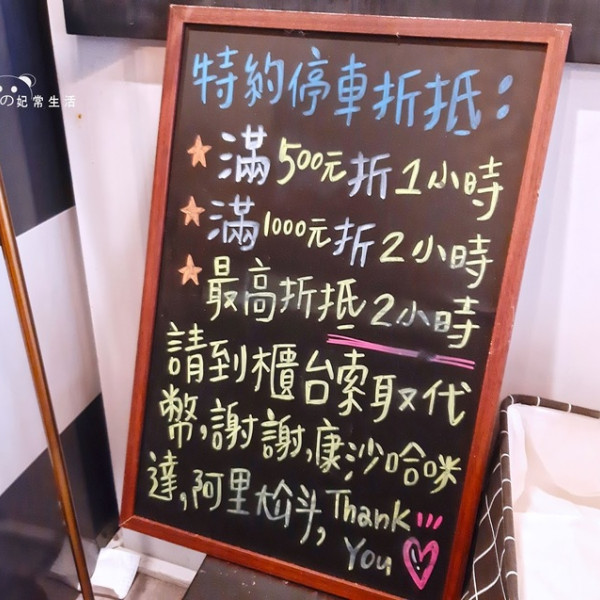 の妃常生活
特約停車折抵:
★滿500元折1小時
★滿1000元折2小時
★最高折抵2小時
請到櫃台索取代
幣,謝謝,康沙哈咪
達,阿里尬斗,Thank
You